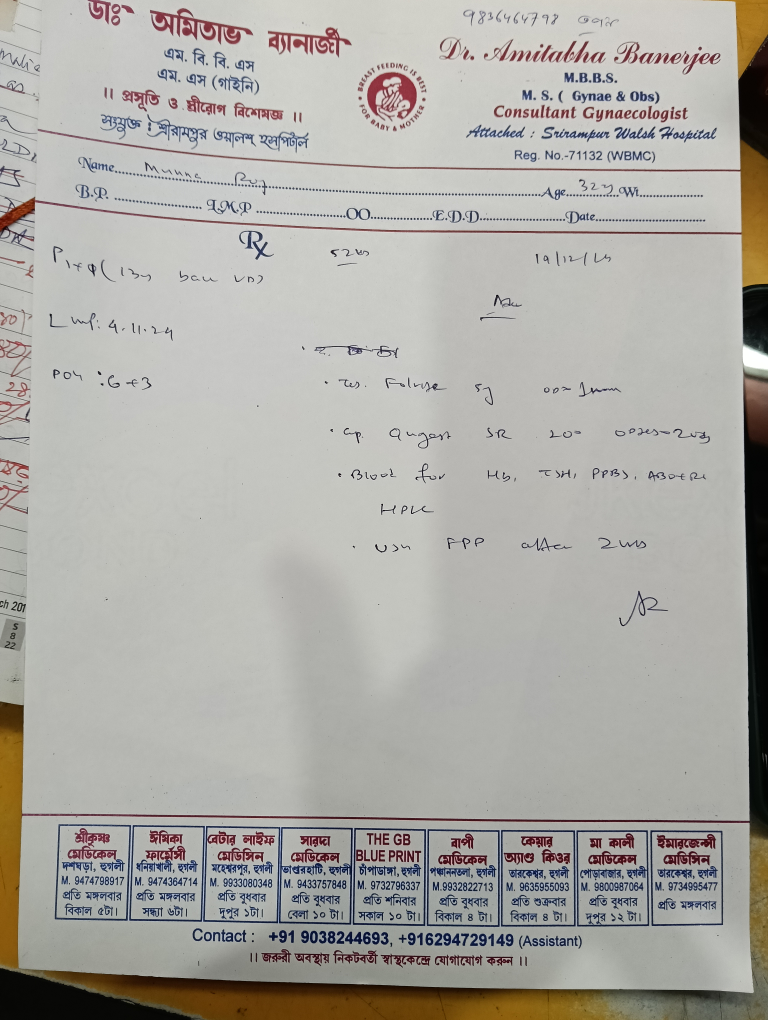 ডাঃ অমিতাভ ব্যানার্জী
এম. বি. বি. এস
এম. এস (গাইনি)
।। প্রসূতি ও স্ত্রীরোগ বিশেষজ্ঞ ।।
সংযুক্ত : শ্রীরামপুর ওয়ালশ হসপিটাল
BREAST FEEDING IS BEST
FOR BABY & MOTHER
9836464798
Dr. Amitabha Banerjee
M.B.B.S.
M. S. ( Gynae & Obs)
Consultant Gynaecologist
Attached : Srirampur Walsh Hospital
Reg. No.-71132 (WBMC)
Name Munna Age 32y Wt
B.P. L.M.P OO E.D.D. Date
Rx
19/12/24
Lmp: 4.11.24
POG : 6+3
5g
SR 200
Blood for Hb, TSH, PPBS, ABO+Rh
HPLC
USG FPP after 2
শ্রীকৃষ্ণ মেডিকেল
দশঘড়া, হুগলী
M. 9474798917
প্রতি মঙ্গলবার
বিকাল ৫টা।
ঈষিকা ফার্মেসী
ধনিয়াখালী, হুগলী
M. 9474364714
প্রতি মঙ্গলবার
সন্ধ্যা ৬টা।
বেটার লাইফ মেডিসিন
মহেশ্বরপুর, হুগলী
M. 9933080348
প্রতি বুধবার
দুপুর ১টা।
সারদা মেডিকেল
ভাণ্ডারহাটি, হুগলী
M. 9433757848
প্রতি বুধবার
বেলা ১০ টা।
THE GB BLUE PRINT
চাঁপাডাঙ্গা, হুগলী
M. 9732796337
প্রতি শনিবার
সকাল ১০ টা।
বাপী মেডিকেল
পঞ্চাননতলা, হুগলী
M.9932822713
প্রতি বুধবার
বিকাল ৪ টা।
কেয়ার অ্যাণ্ড কিওর
তারকেশ্বর, হুগলী
M. 9635955093
প্রতি শুক্রবার
বিকাল ৪ টা।
মা কালী মেডিকেল
পোড়াবাজার, হুগলী
M. 9800987064
প্রতি বুধবার
দুপুর ১২ টা।
ইমারজেন্সী মেডিসিন
তারকেশ্বর, হুগলী
M. 9734995477
প্রতি মঙ্গলবার
Contact : +91 9038244693, +916294729149 (Assistant)
।। জরুরী অবস্থায় নিকটবর্তী স্বাস্থ্যকেন্দ্রে যোগাযোগ করুন ।।